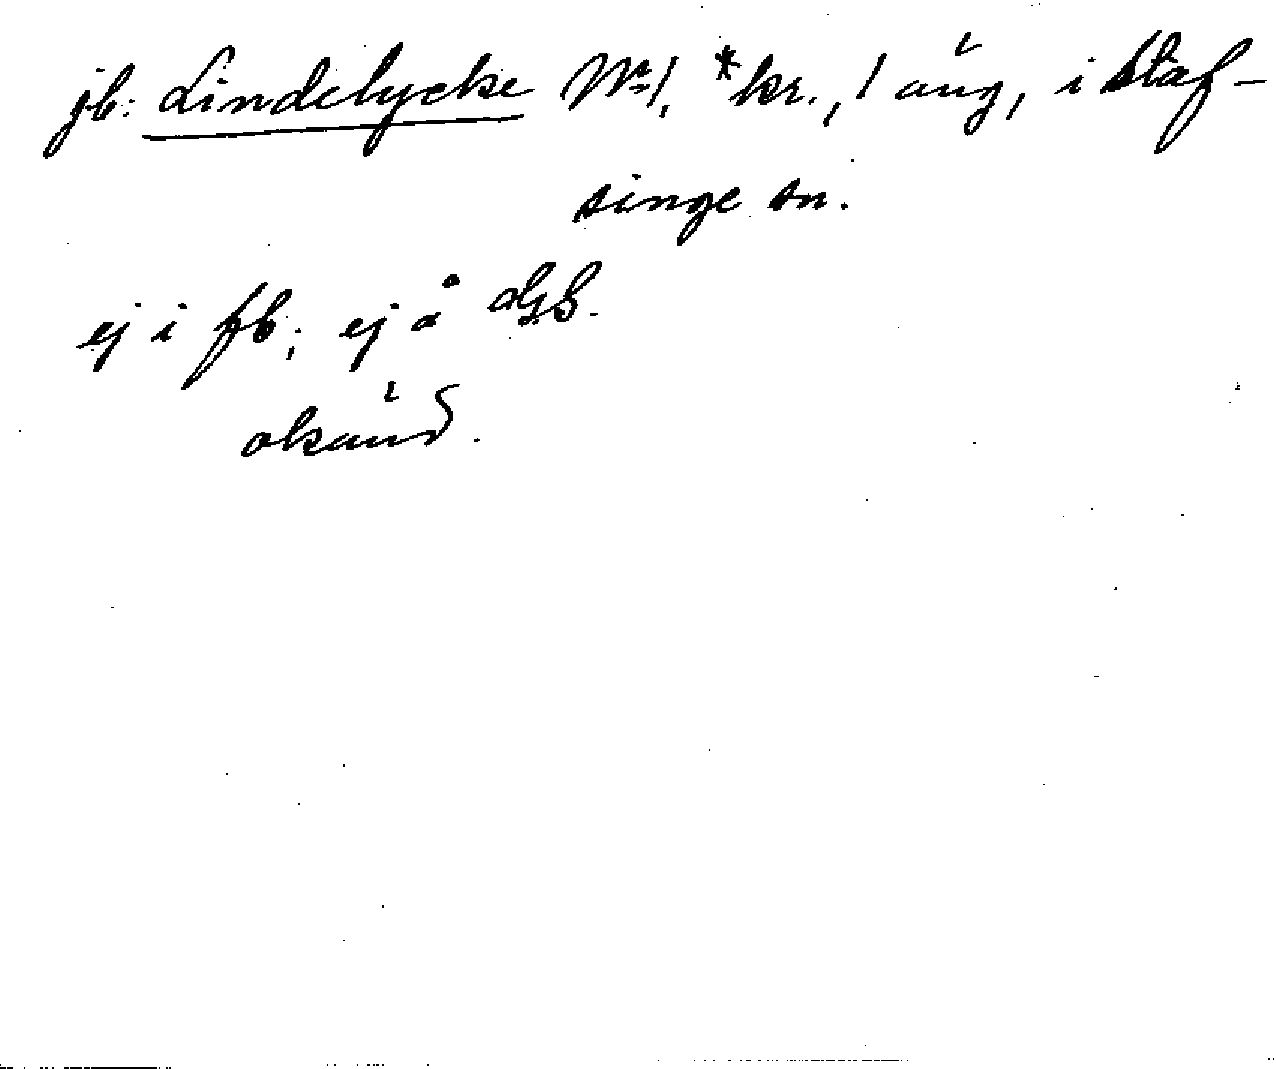 jb: Lindelycke Nr 1, *kr., 1 äng, i Släf-
singe sn.
ej i fb; ej å GS.
okänd.